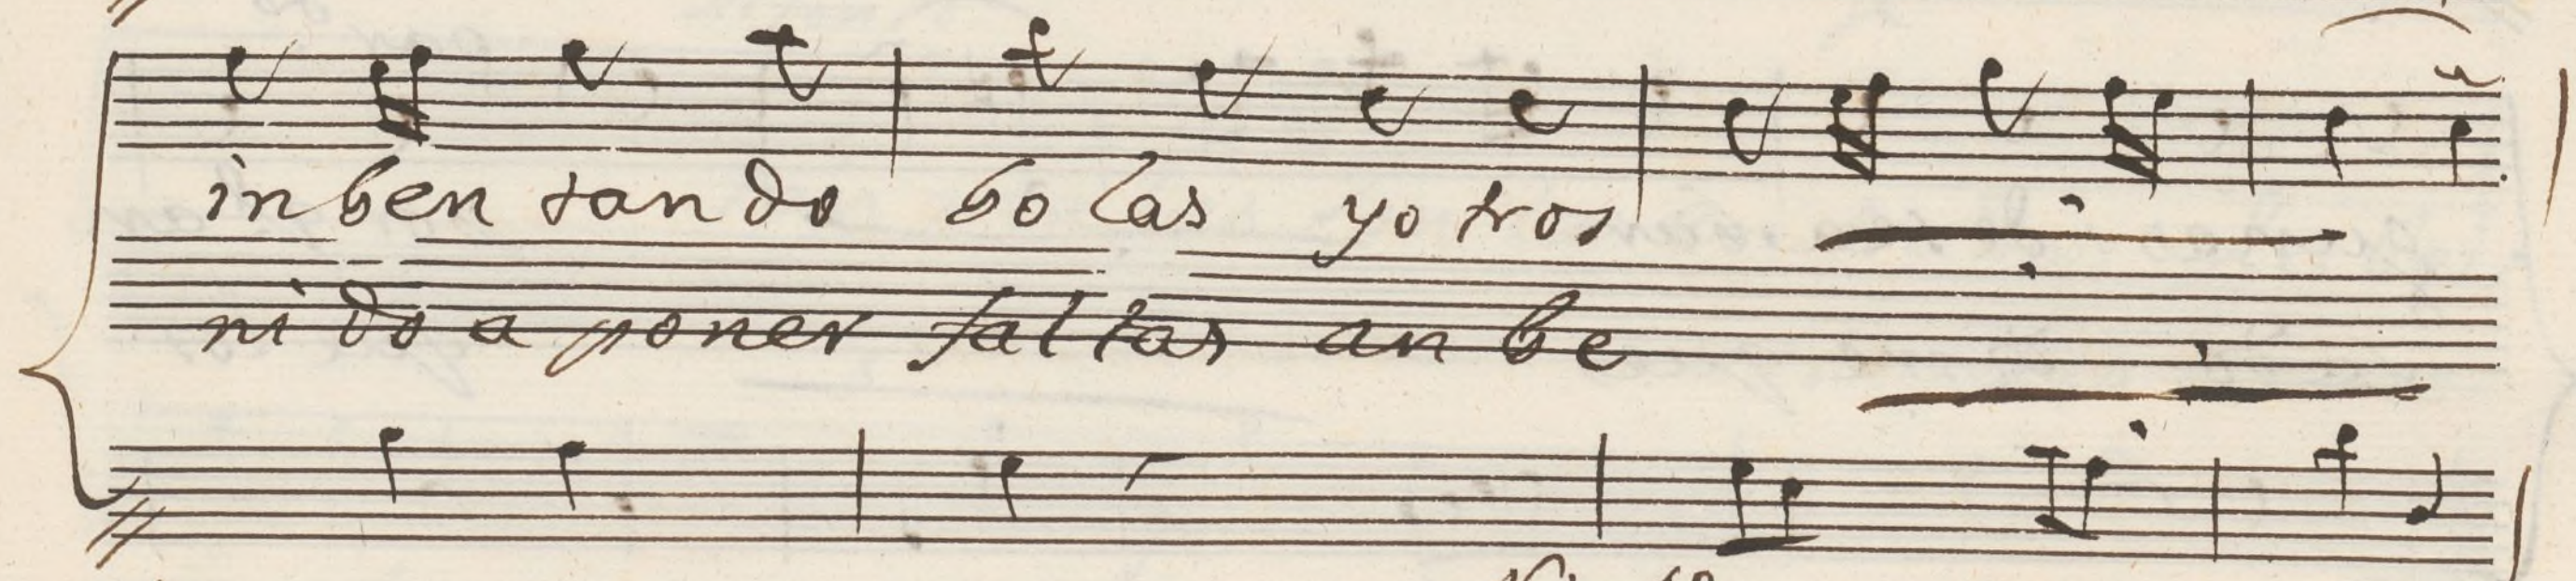 in ben tan do bo las yo tros
ni do a poner fal tas an be